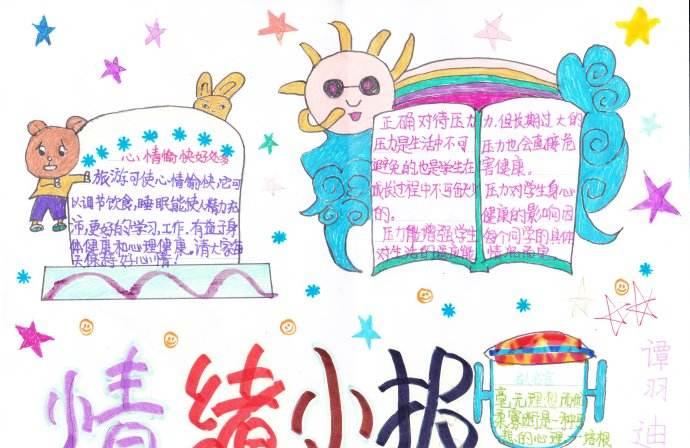 心情愉快好处多
旅游可使心情愉快,它可
以调节饮食,睡眠能使人精力充
沛,更好的学习,工作,有益于身
体健康和心理健康。请大家每
天保持好心情!
正确对待压力
压力是生活中不可
避免的,也是学生在
成长过程中不可缺少
的。
压力能增强学生
对生活的适应能
力,但长期过大的
压力也会直接危
害健康。
压力对学生身心
健康的影响因
每个同学的具体
情况而定
情绪小报
名人名言
毫无理想而优
柔寡断是一种可
悲的心理 — 培根
谭羽迪